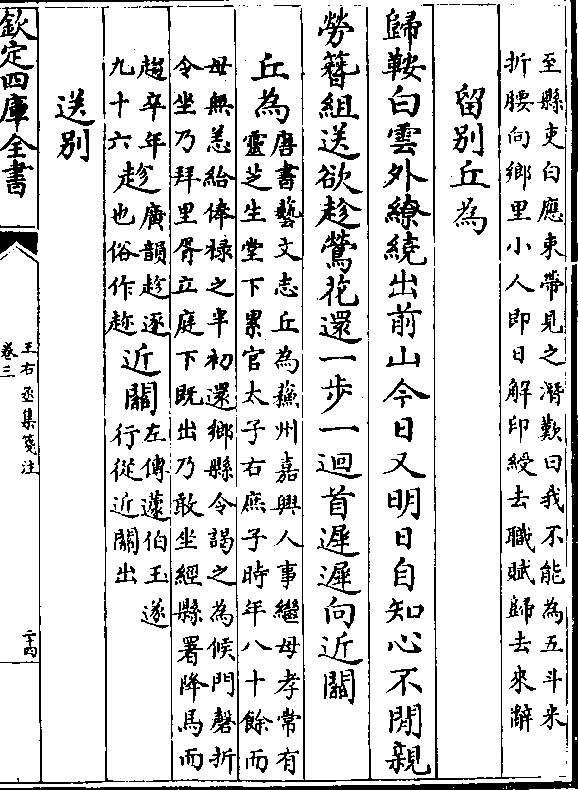 至縣吏白應束帶見之潛歎曰我不能為五斗米
折腰向鄉里小人即日解印綬去職賦歸去來辭
留別丘為
歸鞍白雲外繚繞出前山今日又明日自知心不閒親
勞簪組送欲趁鶯花還一步一迴首遲遲向近關
丘為
唐書藝文志丘為蘇州嘉興人事繼母孝常有
靈芝生堂下累官太子右庶子時年八十餘而
母無恙給俸祿之半初還鄉縣令謁之為候門磬折
令坐乃拜里胥立庭下既出乃敢坐經縣署降馬而
趨卒年
九十六
趁
廣韻趁逐
也俗作趂
近關
左傳蘧伯玉遂
行從近關出
送別
欽定四庫全書
王右丞集箋注
卷三
二十四